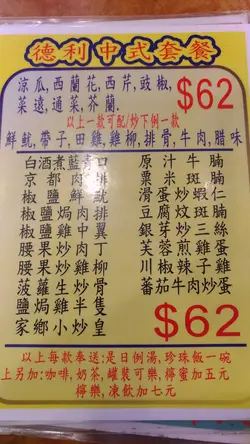 德利中式套餐
涼瓜,西蘭花,西芹,豉椒,
菜遠,通菜,芥蘭.
$62
以上一款可配/炒下例一款
鮮魷,帶子,田雞,雞柳,排骨,牛肉,腊味
白酒煮藍青口
京都肉排
椒鹽鮮魷
椒鹽焗肉排
椒鹽雞中翼
腰果炒肉丁
腰果炒雞柳
菠蘿生炒骨
鹽焗雞半隻
家鄉小炒皇
原汁牛腩
粟米斑腩
滑蛋炒蝦仁
豆腐炆斑腩
銀芽炒三絲
芙蓉煎雞蛋
川椒辣子雞
蕃茄牛肉炒蛋
$62
以上每款奉送:是日例湯,珍珠飯一碗
上另加:咖啡,奶茶,罐裝可樂,檸蜜加五元
檸樂,凍飲加七元